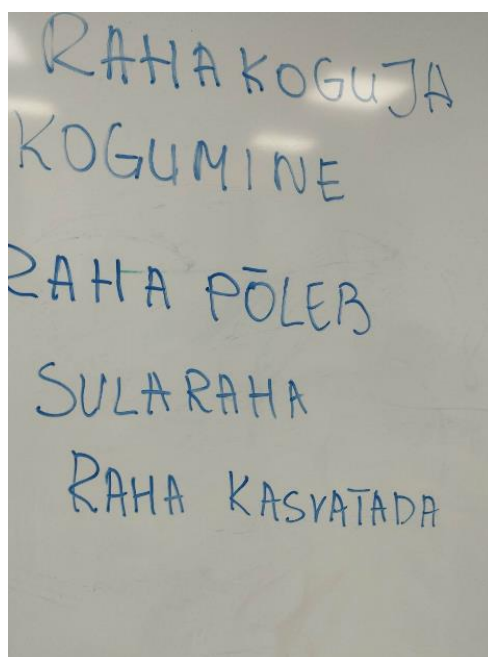 RAHAKOGUJA
KOGUMINE
RAHA PÕLEB
SULARAHA
RAHA KASVATADA